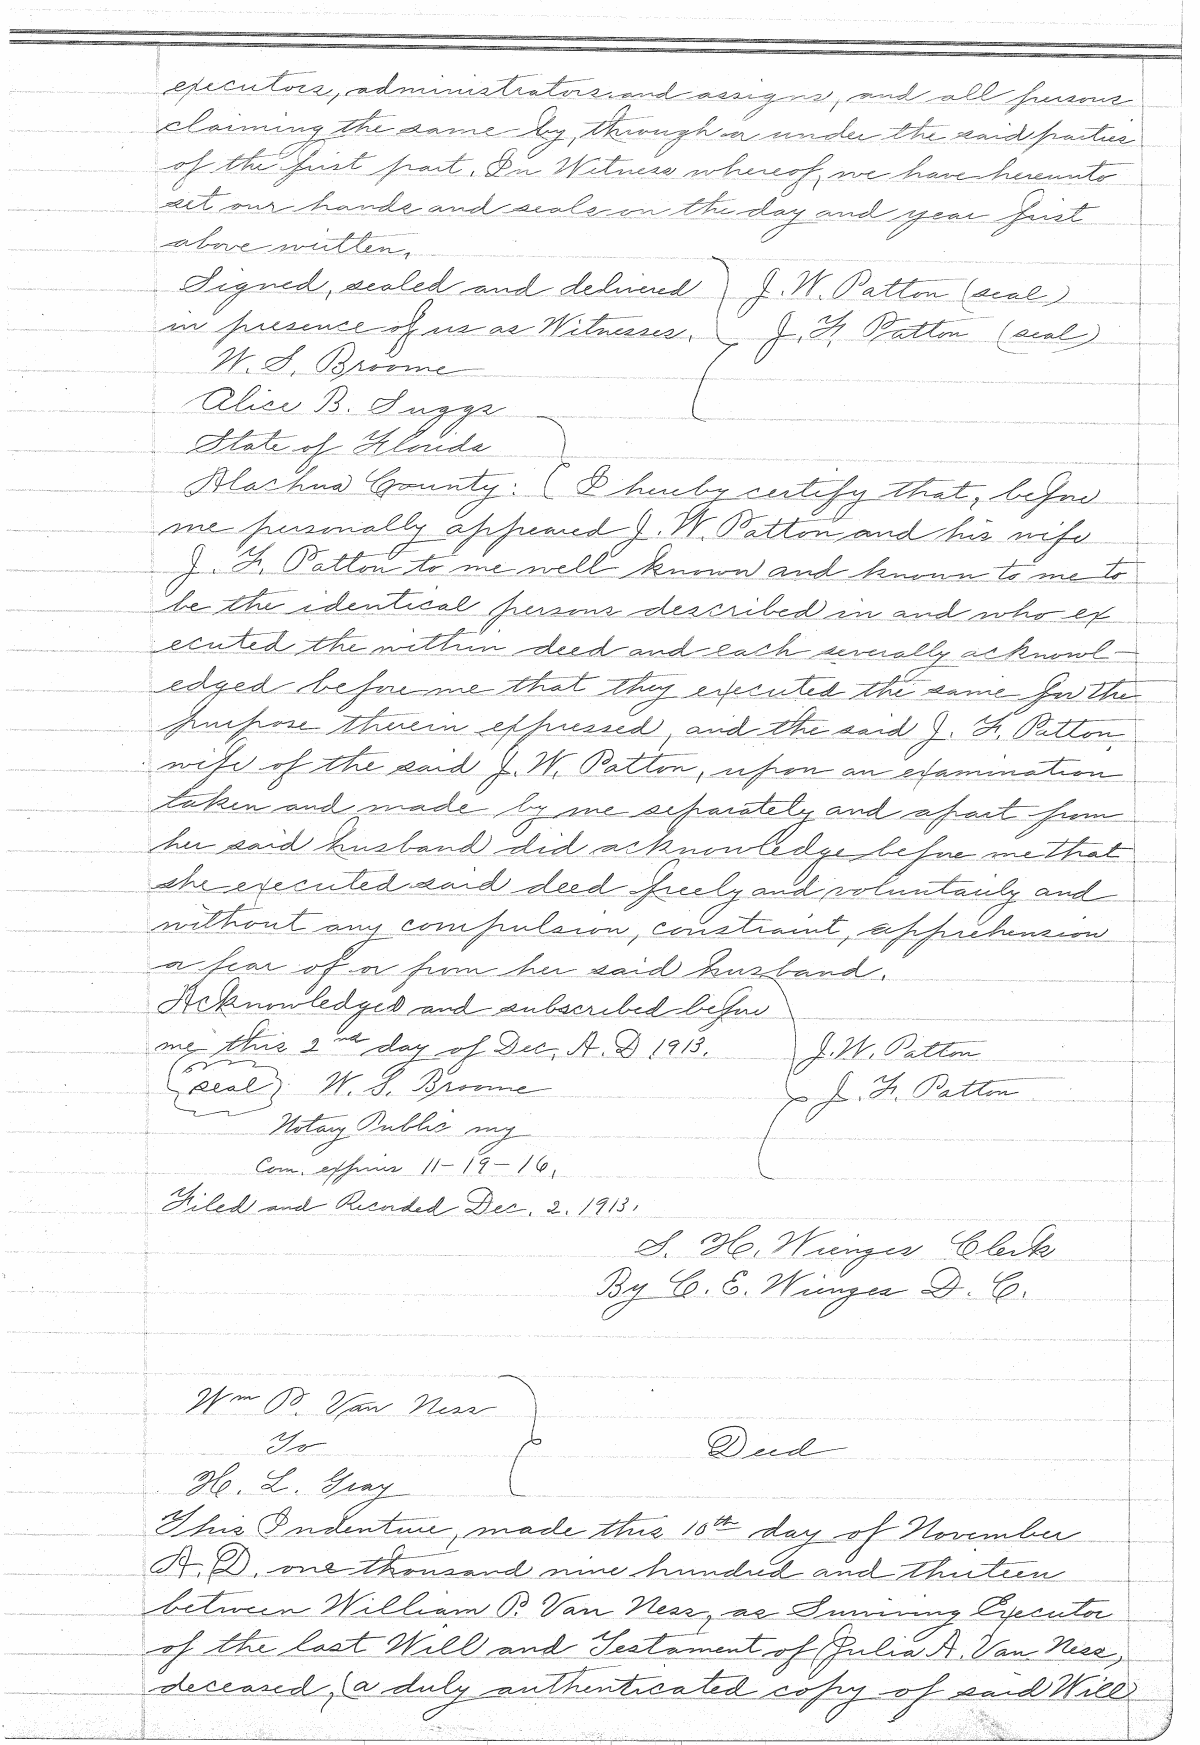 executors, administrators and assigns, and all persons
claiming the same by, through or under the said parties
of the first part. In Witness whereof, we have hereunto
set our hands and seals on the day and year first
above written.
Signed, sealed and delivered J. W. Patton (seal)
in presence of us as Witnesses. J. F. Patton (seal)
W. S. Broome
Alice B. Suggs
State of Florida
Alachua County: I hereby certify that, before
me personally appeared J. W. Patton and his wife
J. F. Patton to me well known and known to me to
be the identical persons described in and who ex
ecuted the within deed and each severally acknowl-
edged before me that they executed the same for the
purpose therein expressed, and the said J. F. Patton,
wife of the said J. W. Patton, upon an examination
taken and made by me separately and apart from
her said husband did acknowledge before me that
she executed said deed freely and voluntarily and
without any compulsion, constraint, apprehension
or fear of or from her said husband.
Acknowledged and subscribed before
me this 2nd day of Dec. A. D 1913. J. W. Patton
(seal) W. S. Broome J. F. Patton
Notary Public my
Com. expires 11-19-16.
Filed and Recorded Dec. 2. 1913.
S. H. Wienges Clerk
By C. E. Wienges D. C.
Wm P. Van Ness
To Deed
H. L. Gray
This Indenture, made this 10th day of November
A. D. one thousand nine hundred and thirteen
between William P. Van Ness, as Surviving Executor
of the last Will and Testament of Julia A. Van Ness,
deceased, (a duly authenticated copy of said Will